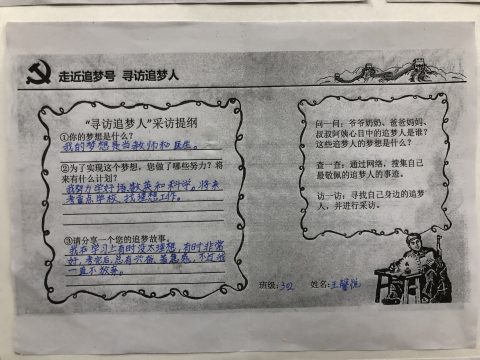 走近追梦号 寻访追梦人
“寻访追梦人”采访提纲
①你的梦想是什么？
我的梦想是当教师和医生。
②为了实现这个梦想，您做了哪些努力？将
来有什么计划？
我努力学好语数英和科学。将来
考重点学校、找理想工作。
③请分享一个您的追梦故事。
我在学习上有时没太理想，有时非常
好，考完后，总有兴奋、着急感，不过我
一直不放弃。
问一问：爷爷奶奶、爸爸妈妈、
叔叔阿姨心目中的追梦人是谁？
这些追梦人的梦想是什么？
查一查：通过网络，搜集自己
最敬佩的追梦人的事迹。
访一访：寻找自己身边的追梦
人，并进行采访。
班级：302 姓名：王馨悦